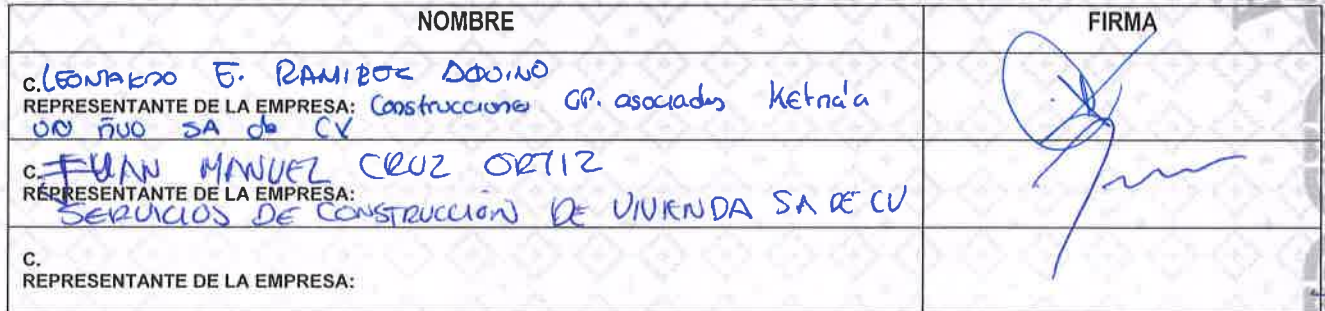 NOMBRE FIRMA
C. LEONARDO E. RAMIREZ AQUINO
REPRESENTANTE DE LA EMPRESA: Construcciones GP. asociados
SA de CV
C. JUAN MANUEL CRUZ ORTIZ
REPRESENTANTE DE LA EMPRESA:
SERVICIOS DE CONSTRUCCIÓN DE VIVIENDA SA DE CV
C.
REPRESENTANTE DE LA EMPRESA: